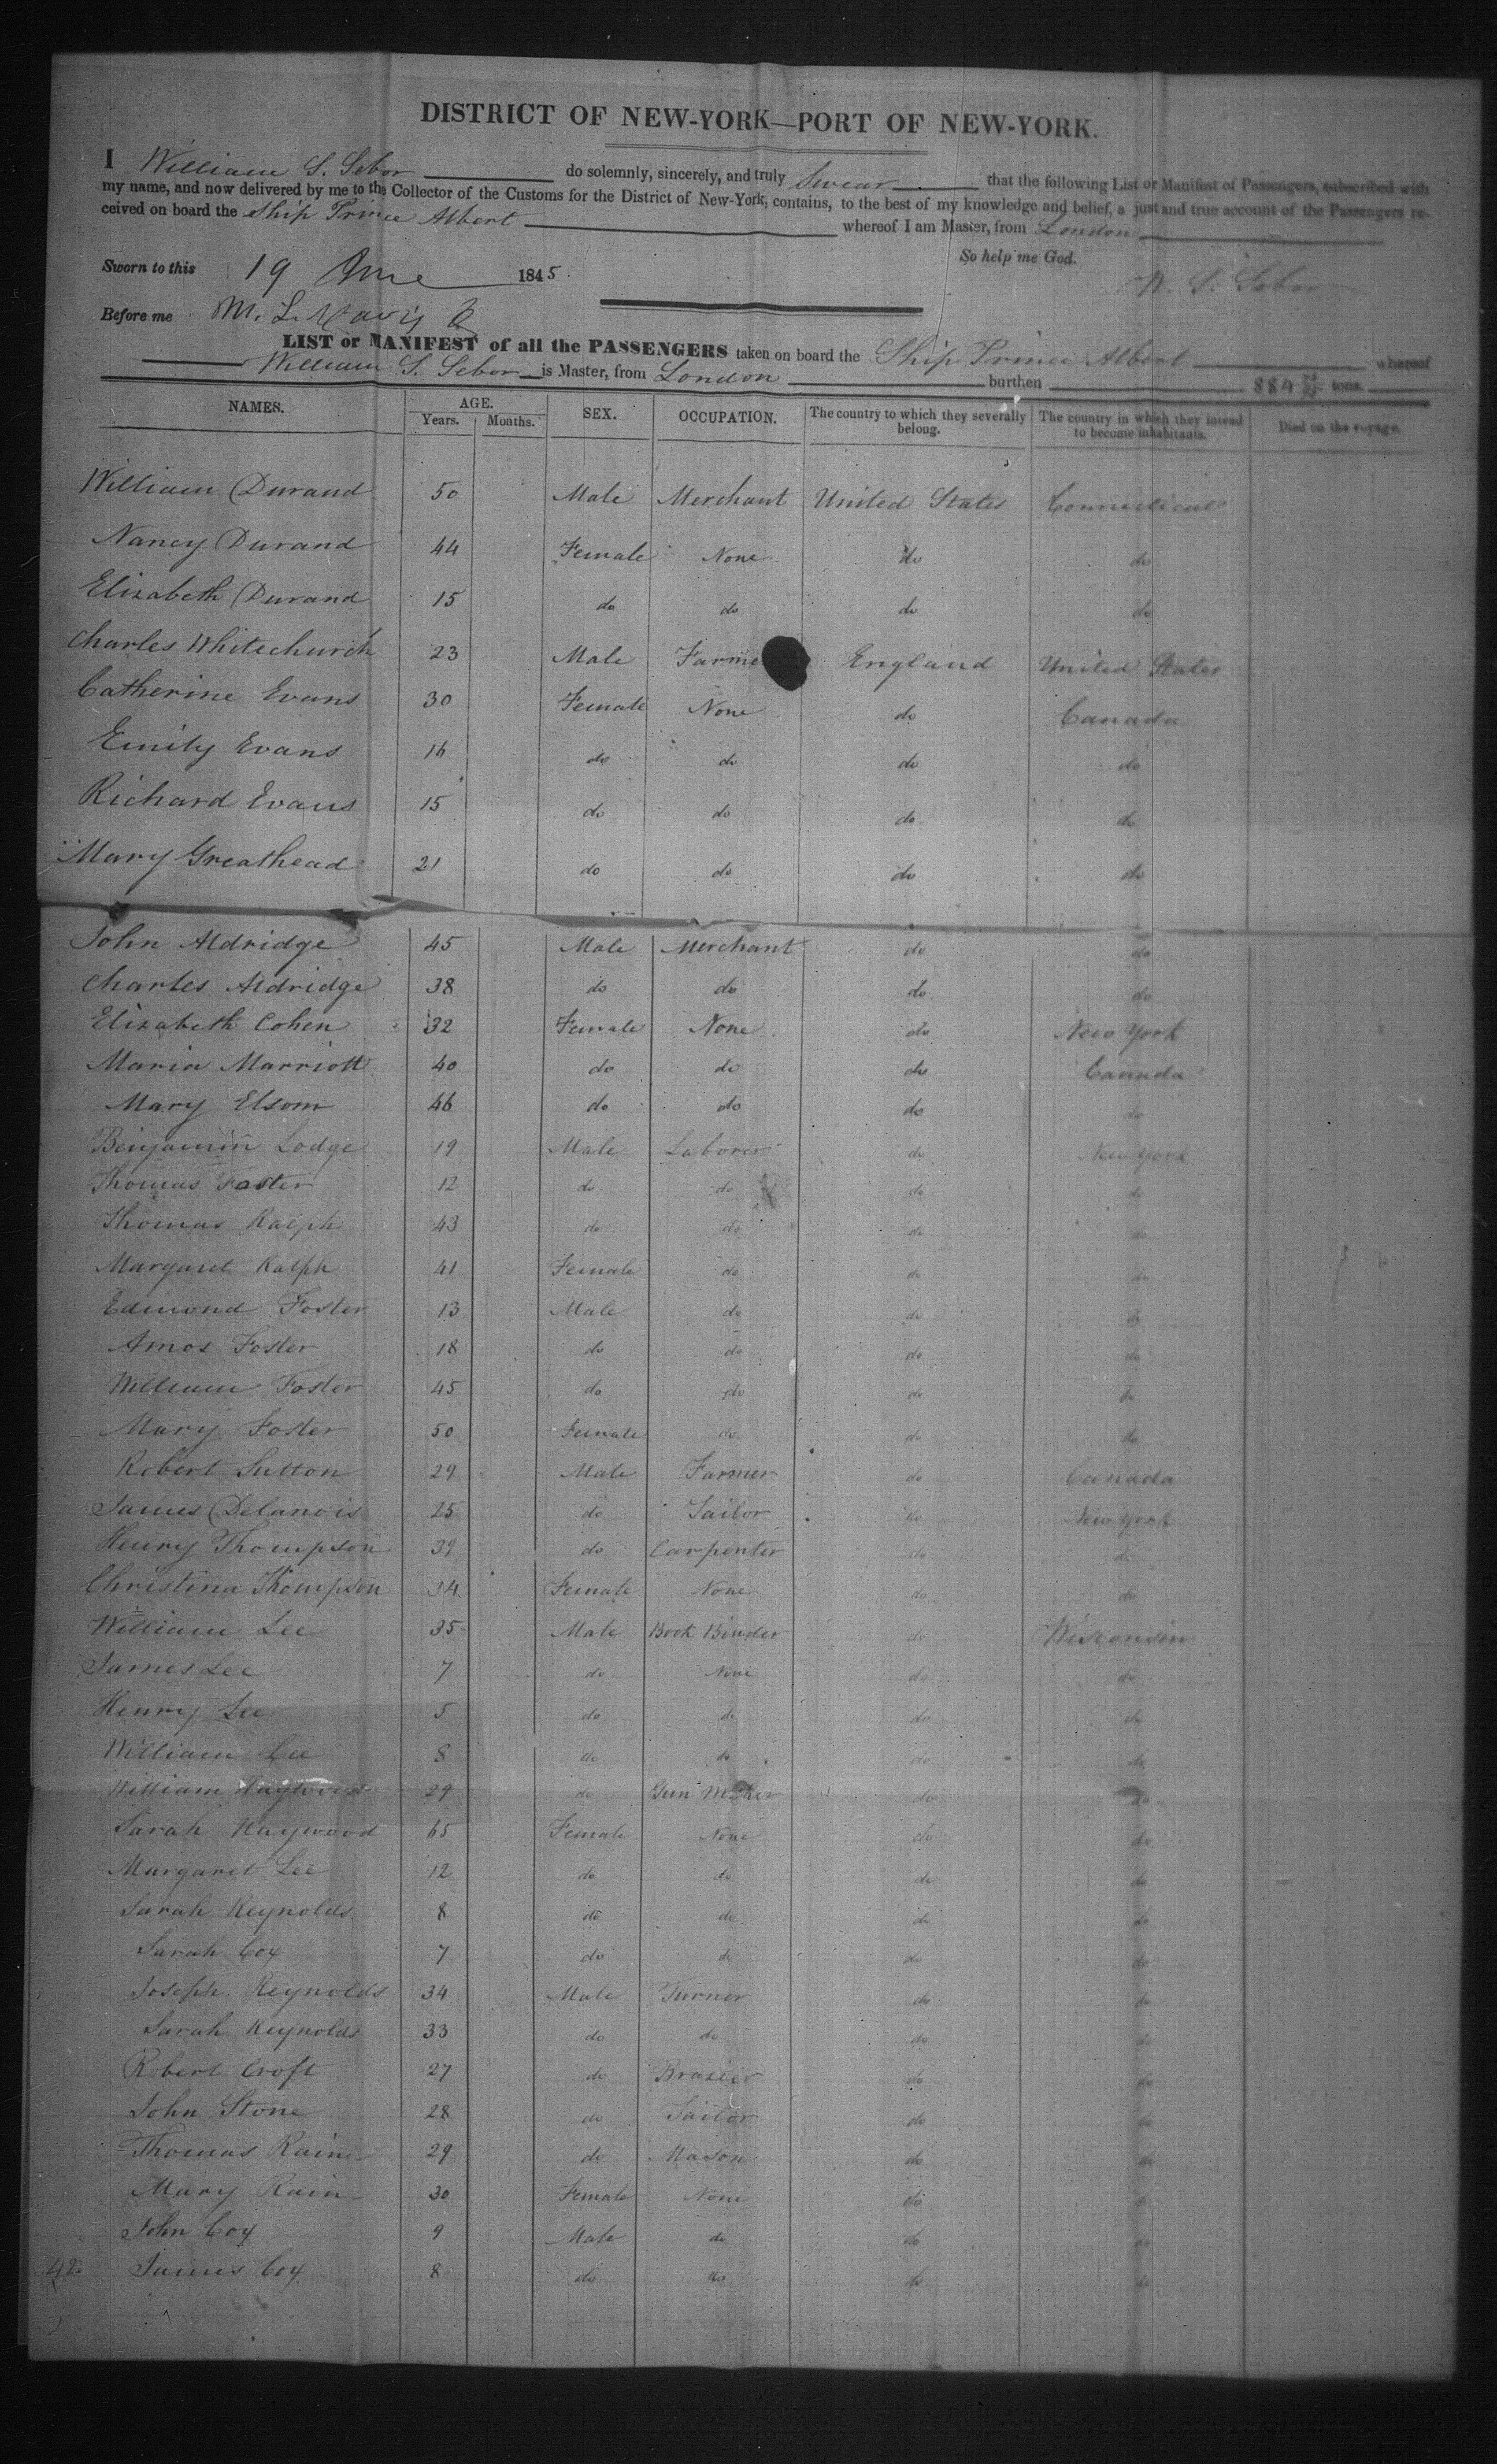 DISTRICT OF NEW-YORK—PORT OF NEW-YORK.
I William S. Sebor do solemnly, sincerely, and truly Swear that the following List or Manifest of Passengers, subscribed with
my name, and now delivered by me to the Collector of the Customs for the District of New-York, contains, to the best of my knowledge and belief, a just and true account of the Passengers re-
ceived on board the Ship Prince Albert whereof I am Master, from London
So help me God.
Sworn to this 19 June 1845
W. S. Sebor
Before me M. L.
LIST or MANIFEST of all the PASSENGERS taken on board the Ship Prince Albert whereof
William S. Sebor is Master, from London burthen 884 tons.
NAMES. AGE. Years. Months. SEX. OCCUPATION. The country to which they severally belong. The country in which they intend to become inhabitants. Died on the voyage.
William Durand 50 Male Merchant United States Connecticut
Nancy Durand 44 Female None do do
Elizabeth Durand 15 do do do do
Charles Whitechurch 23 Male Farme England United States
Catherine Evans 30 Female None do Canada
Emily Evans 16 do do do do
Richard Evans 15 do do do do
Mary Greathead 21 do do do do
John Aldridge 45 Male Merchant do do
Charles Aldridge 38 do do do do
Elizabeth Cohen 32 Female None do New York
Maria Marriott 40 do do do Canada
Mary Elsom 46 do do do do
Benjamin Lodge 19 Male Laborer do New York
Thomas Foster 12 do do do do
Thomas Ralph 43 do do do do
Margaret Ralph 41 Female do do do
Edmond Foster 13 Male do do do
Amos Foster 18 do do do do
William Foster 45 do do do do
Mary Foster 50 Female do do do
Robert Sutton 29 Male Farmer do Canada
James Delanois 25 do Tailor do New York
Henry Thompson 39 do Carpenter do do
Christina Thompson 34 Female None do do
William Lee 35 Male Book Binder do Wisconsin
James Lee 7 do None do do
Henry Lee 5 do do do do
William Lee 8 do do do do
William Haywood 29 do Gun Maker do do
Sarah Haywood 65 Female None do do
Margaret Lee 12 do do do do
Sarah Reynolds 8 do do do do
Sarah Cox 7 do do do do
Joseph Reynolds 34 Male Turner do do
Sarah Reynolds 33 do do do do
Robert Croft 27 do Brazier do do
John Stone 28 do Tailor do do
Thomas Rain 29 do Mason do do
Mary Rain 30 Female None do do
John Cox 9 Male do do do
42 James Cox 8 do do do do